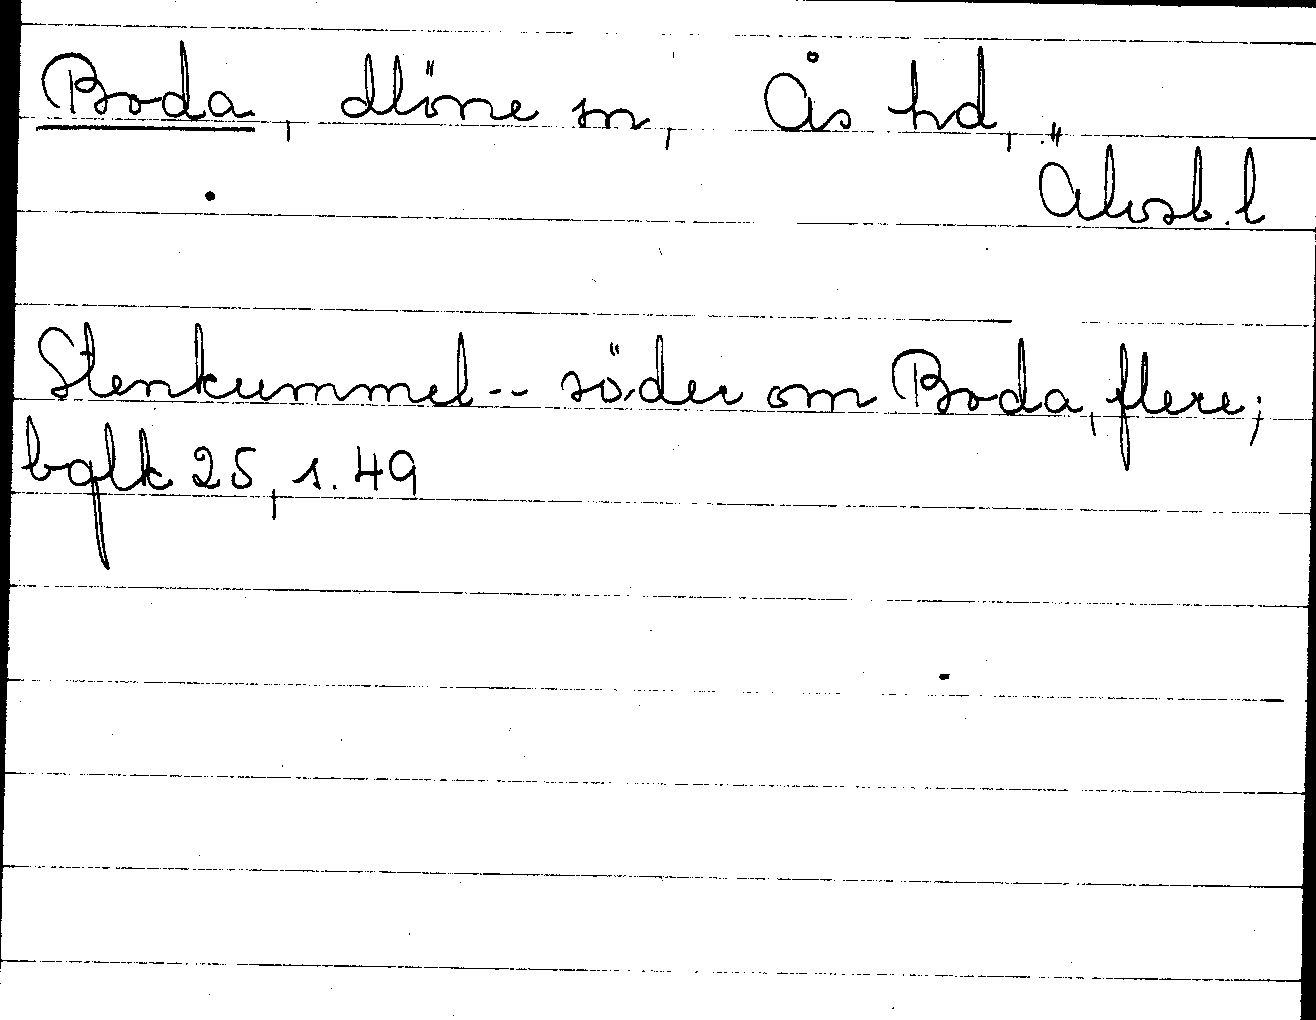 Boda, Möne sn, Ås hd,
Älvsb. l
Stenkummel -- söder om Boda, flere;
bglk 25, s. 49